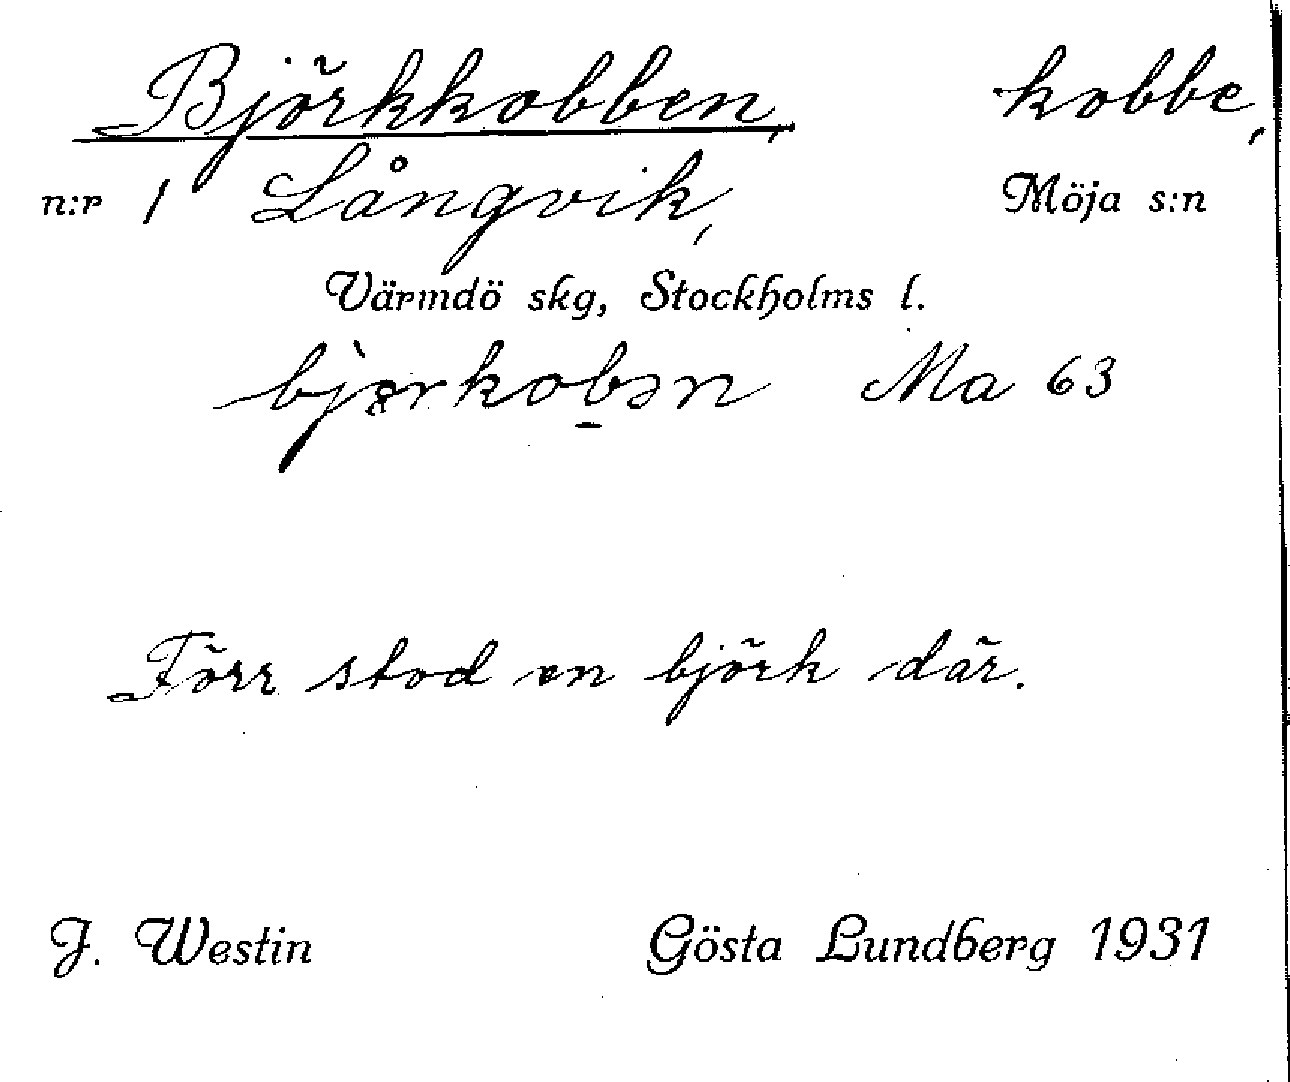 Björkkobben, kobbe,
n:r 1 Långvik, Möja s:n
Värmdö skg, Stockholms l.
Ma 63
Förr stod en björk där.
J. Westin Gösta Lundberg 1931